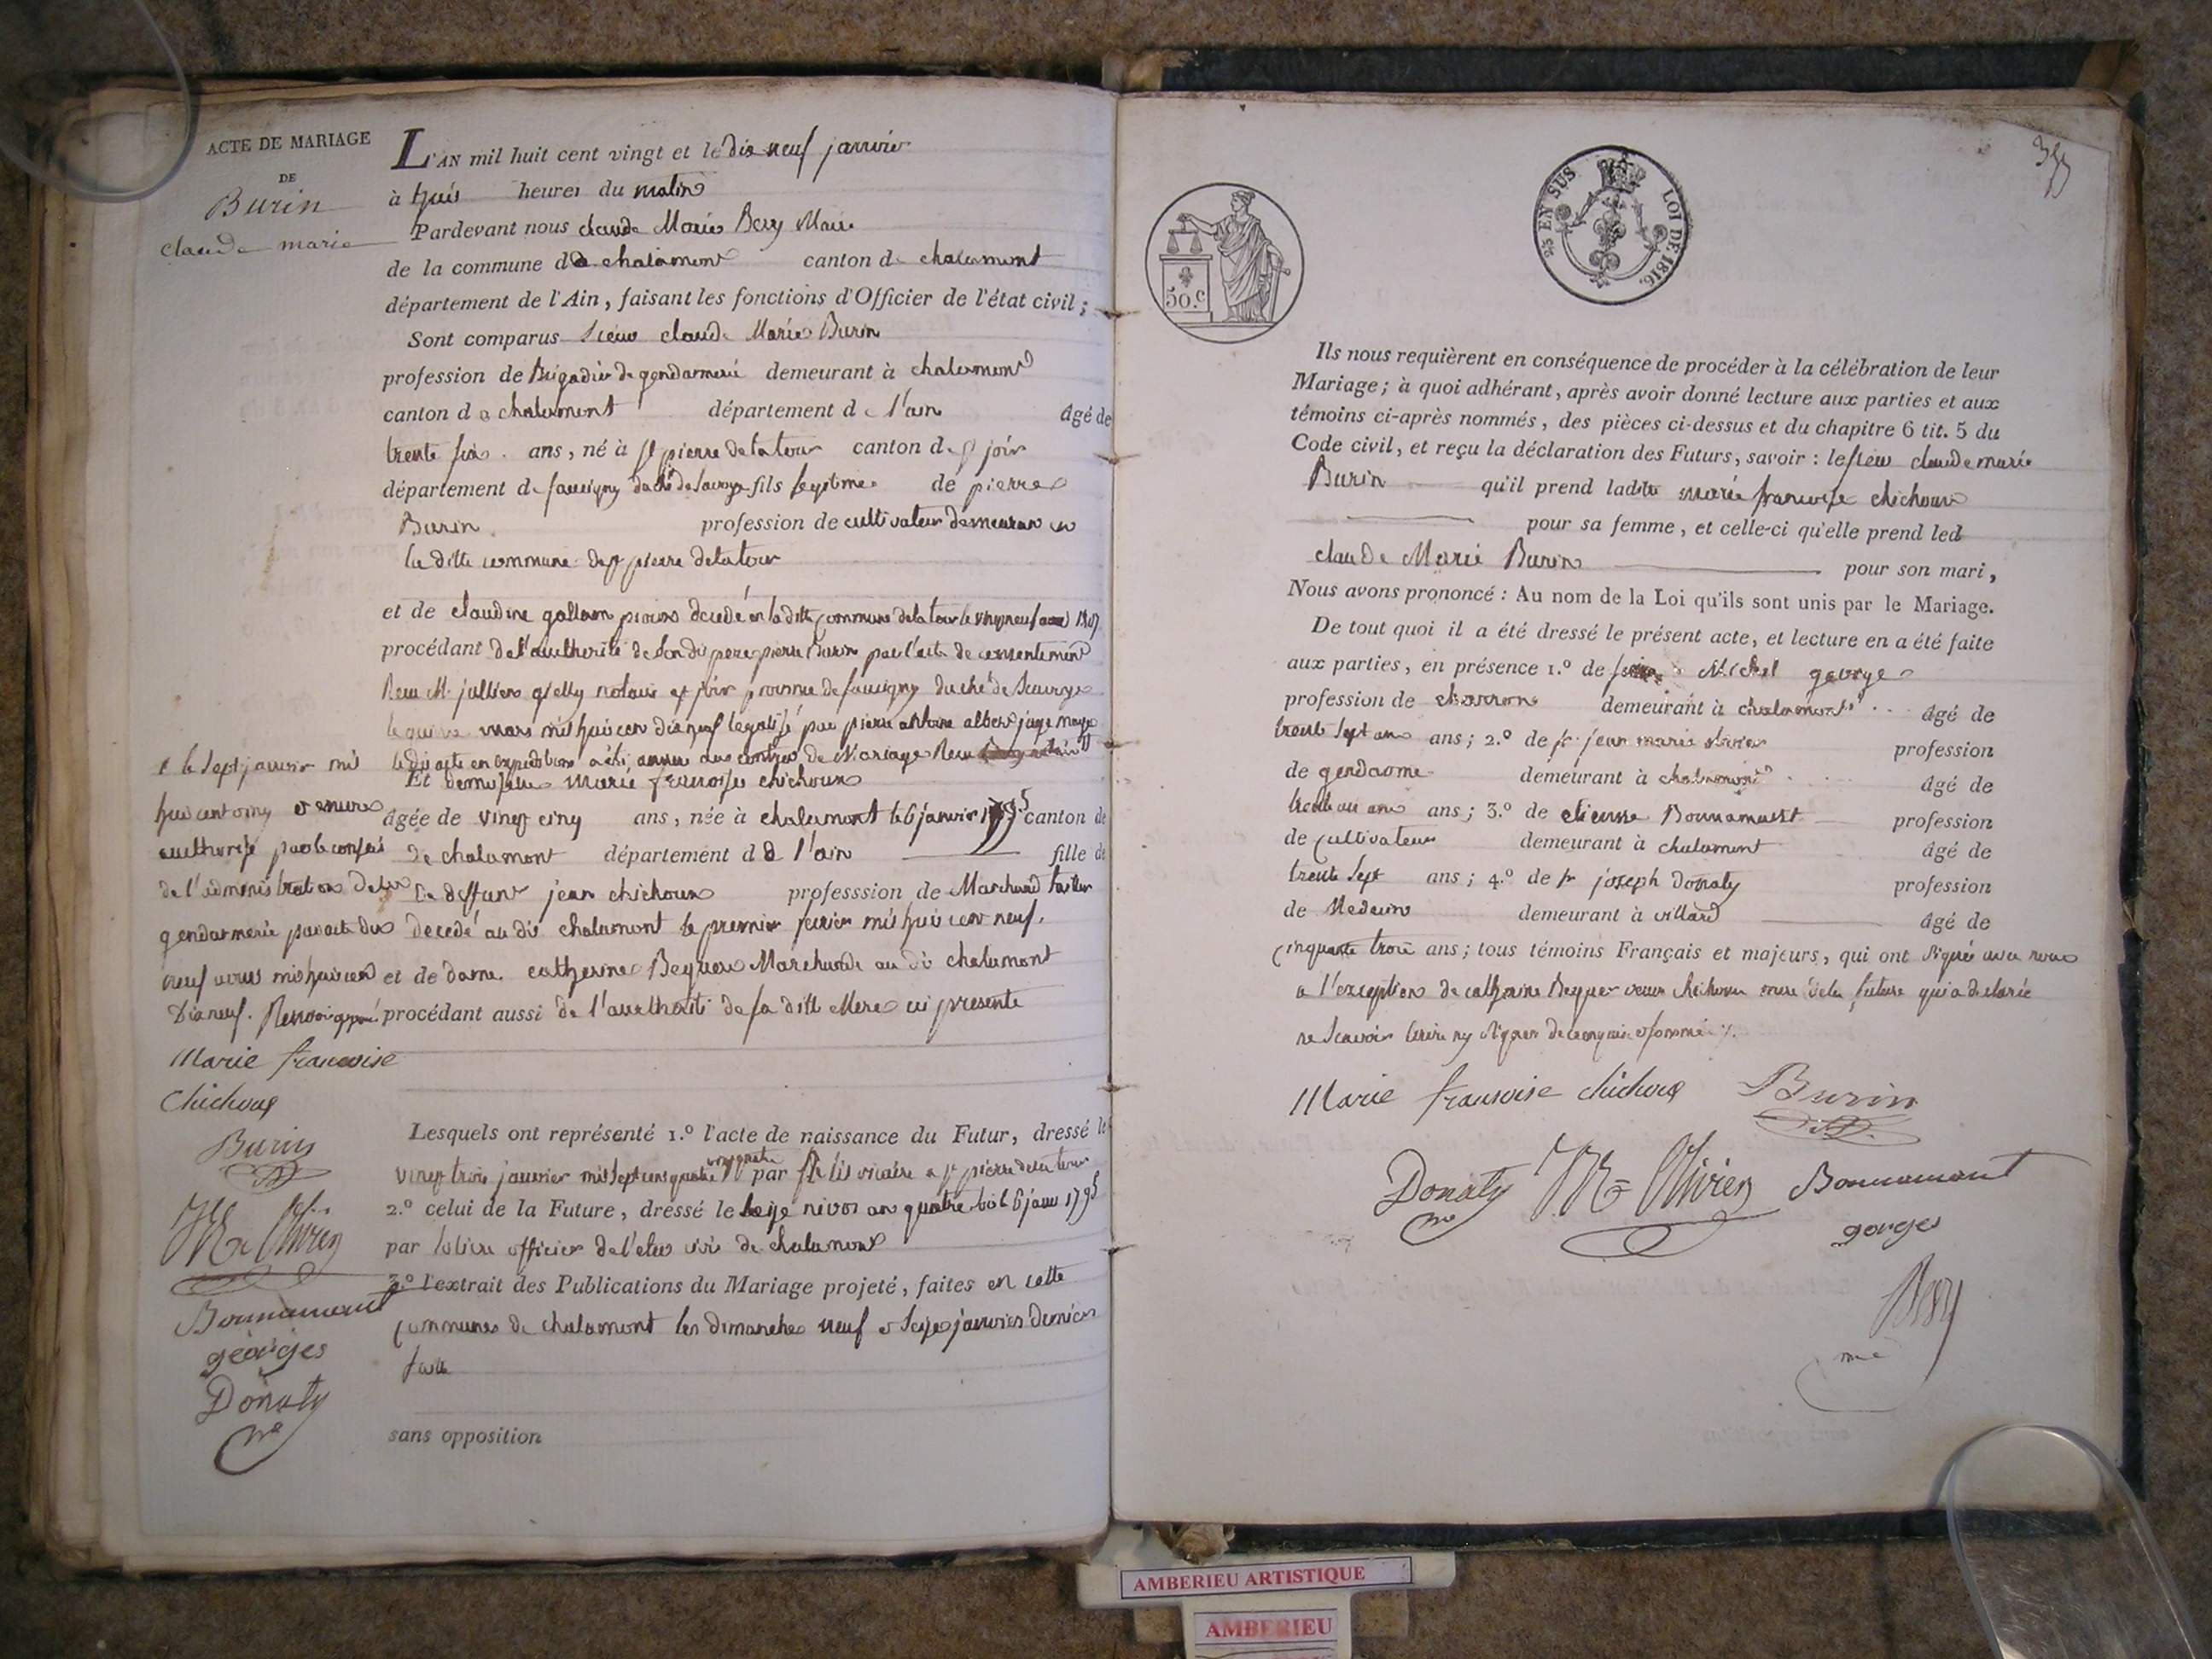 ACTE DE MARIAGE
DE
Burin
claude marie
L'AN mil huit cent vingt et le dix neuf janvier
à huis heures du matin
Pardevant nous claude Marie Bery Maire
de la commune de chalamont canton de chalamont
département de l'Ain, faisant les fonctions d'Officier de l'état civil;
Sont comparus Sieur claude Marie Burin
profession de Brigadier de gendarmerie demeurant à chalamont
canton de chalamont département de l'ain âgé de
trente six ans, né à st pierre de la tour canton de st joir
département de faucigny duché de Savoye fils legitime de pierre
Burin profession de cultivateur demeurant en
la ditte commune de st pierre de la tour
et de claudine decedé en la ditte commune de la tour le
procédant de l'autherité de son dit pere pierre Burin par l'acte de consentement
Reçu Me notaire st joir province de faucigny duché de Savoye
le mars mil huit cent dix neuf legalisé par pierre antoine juge
le dit acte en expedition a été annexé au contrat de Mariage Reçu
Et demoiselle marie francoise chichoux
agée de vingt cinq ans, née à chalamont le 6 janvier 1795 canton de
de chalamont département de l'ain fille de
de deffunt jean chichoux professsion de Marchand
decedé au dit chalamont le premier fevrier mil huit cent neuf.
et de dame catherine Bequer Marchande au dit chalamont
procédant aussi de l'autherité de sa ditte Mere ici presente
le sept janvier mil
huit cent vingt et encore
autherisé par le conseil
de l'administration de la
gendarmerie par acte du
neuf mil huit cent
Dix neuf.
Marie francoise
Chichoux
Burin
Olivier
Bonnamant
georges
Donaty
Lesquels ont représenté 1.° l'acte de naissance du Futur, dressé le
vingt trois janvier mil sept cent quatre vingt quatre par vicaire a st pierre de la tour
2.° celui de la Future, dressé le seize nivos an quatre le 6 janv 1795
par officier de l'etat civil de chalamont
3.° l'extrait des Publications du Mariage projeté, faites en cette
commune de chalamont les dimanches neuf et seize janvier dernier
sans opposition
50.c
25 EN SUS LOI DE 1816.
Ils nous requièrent en conséquence de procéder à la célébration de leur
Mariage; à quoi adhérant, après avoir donné lecture aux parties et aux
témoins ci-après nommés, des pièces ci-dessus et du chapitre 6 tit. 5 du
Code civil, et reçu la déclaration des Futurs, savoir: le sieur claude marie
Burin qu'il prend ladite marie francoise chichoux
pour sa femme, et celle-ci qu'elle prend led
claude Marie Burin pour son mari,
Nous avons prononcé: Au nom de la Loi qu'ils sont unis par le Mariage.
De tout quoi il a été dressé le présent acte, et lecture en a été faite
aux parties, en présence 1.° de Michel george
profession de charron demeurant à chalamont âgé de
trente sept ans ans; 2.° de sr jean marie olivier profession
de gendarme demeurant à chalamont âgé de
ans; 3.° de etienne Bonnamant profession
de cultivateur demeurant à chalamont âgé de
trente sept ans; 4.° de sr joseph Donaty profession
de Medecin demeurant à villard âgé de
cinquante trois ans; tous témoins Français et majeurs, qui ont signés avec nous
a l'exception de catherine Bequer veuve chichoux mere de la future qui a declarée
ne scavoir ecrire ny signer de ce enquise et sommé
Marie francoise chichoux Burin
Donaty Olivier Bonnamant
georges
Bery
AMBERIEU ARTISTIQUE
AMBERIEU